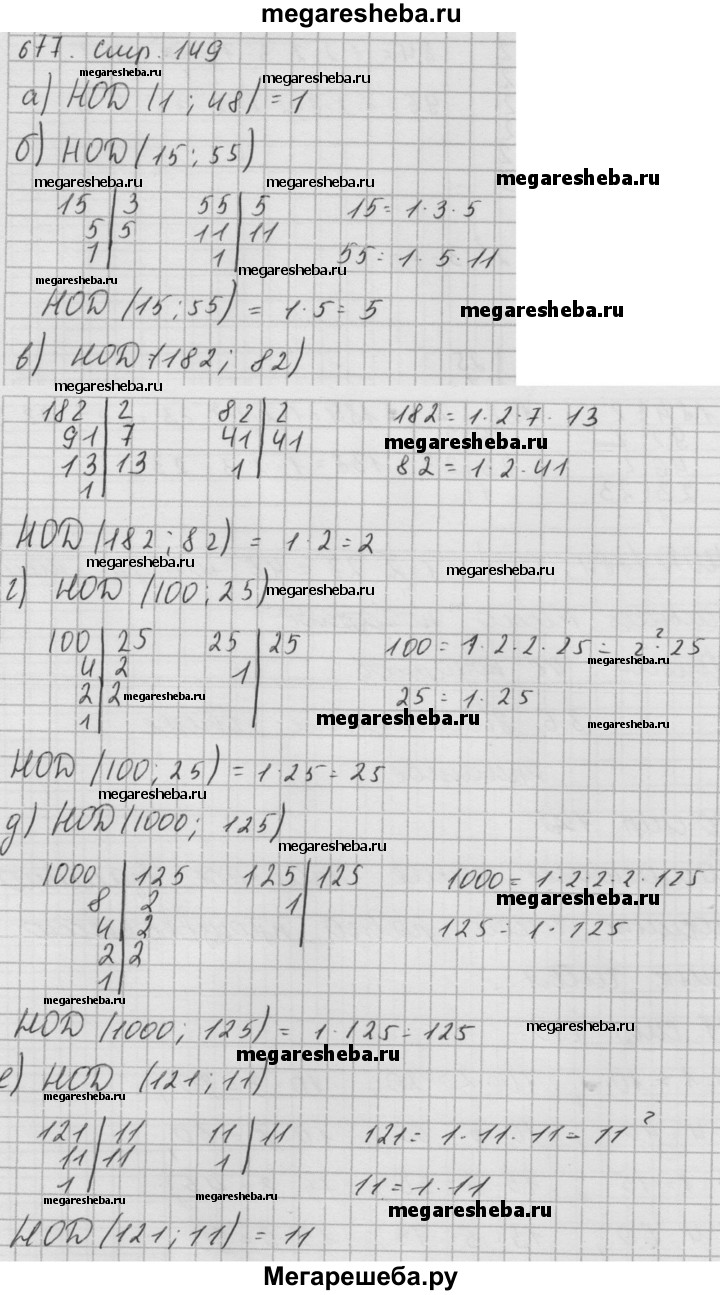 megaresheba.ru
677. стр. 149
megaresheba.ru megaresheba.ru
а) НОД (1 ; 48) = 1
б) НОД (15 ; 55)
megaresheba.ru megaresheba.ru megaresheba.ru
15 | 3 55 | 5 15 = 1 · 3 · 5
5 | 5 11 | 11
1 | 1 | 55 = 1 · 5 · 11
megaresheba.ru megaresheba.ru
НОД (15 ; 55) = 1 · 5 = 5 megaresheba.ru
в) НОД (182 ; 82)
megaresheba.ru
182 | 2 82 | 2 182 = 1 · 2 · 7 · 13
91 | 7 41 | 41 megaresheba.ru
13 | 13 1 | 82 = 1 · 2 · 41
1 |
НОД (182 ; 82) = 1 · 2 = 2
megaresheba.ru megaresheba.ru
г) НОД (100 ; 25) megaresheba.ru
100 | 25 25 | 25 100 = 1 · 2 · 2 · 25 = 2² · 25
4 | 2 1 | megaresheba.ru
2 | 2 megaresheba.ru 25 = 1 · 25
1 | megaresheba.ru megaresheba.ru
НОД (100 ; 25) = 1 · 25 = 25
megaresheba.ru
д) НОД (1000 ; 125)
megaresheba.ru
1000 | 125 125 | 125 1000 = 1 · 2 · 2 · 2 · 125
8 | 2 1 | megaresheba.ru
4 | 2 125 = 1 · 125
2 | 2
1 |
megaresheba.ru
НОД (1000 ; 125) = 1 · 125 = 125 megaresheba.ru
megaresheba.ru
е) НОД (121 ; 11)
megaresheba.ru megaresheba.ru
121 | 11 11 | 11 121 = 1 · 11 · 11 = 11²
11 | 11 1 |
1 | 11 = 1 · 11
megaresheba.ru megaresheba.ru megaresheba.ru
НОД (121 ; 11) = 11
Мегарешеба.ру